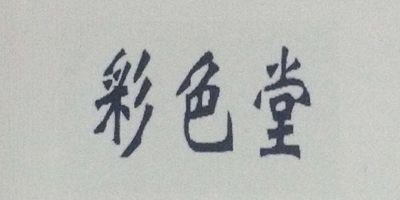 彩色堂